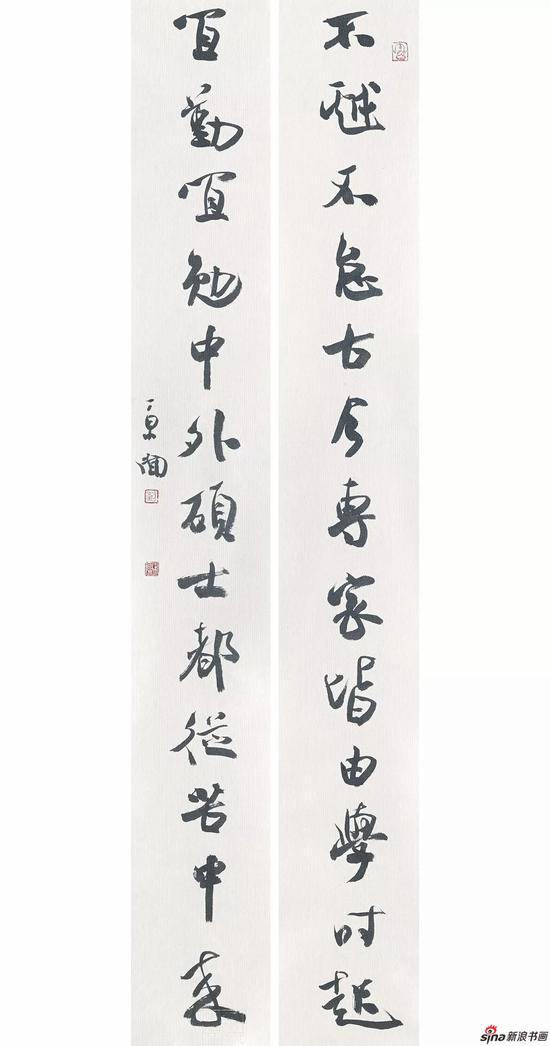 不不怠古今專家皆由學时起
宜勤宜勉中外碩士都從苦中来
sina新浪书画